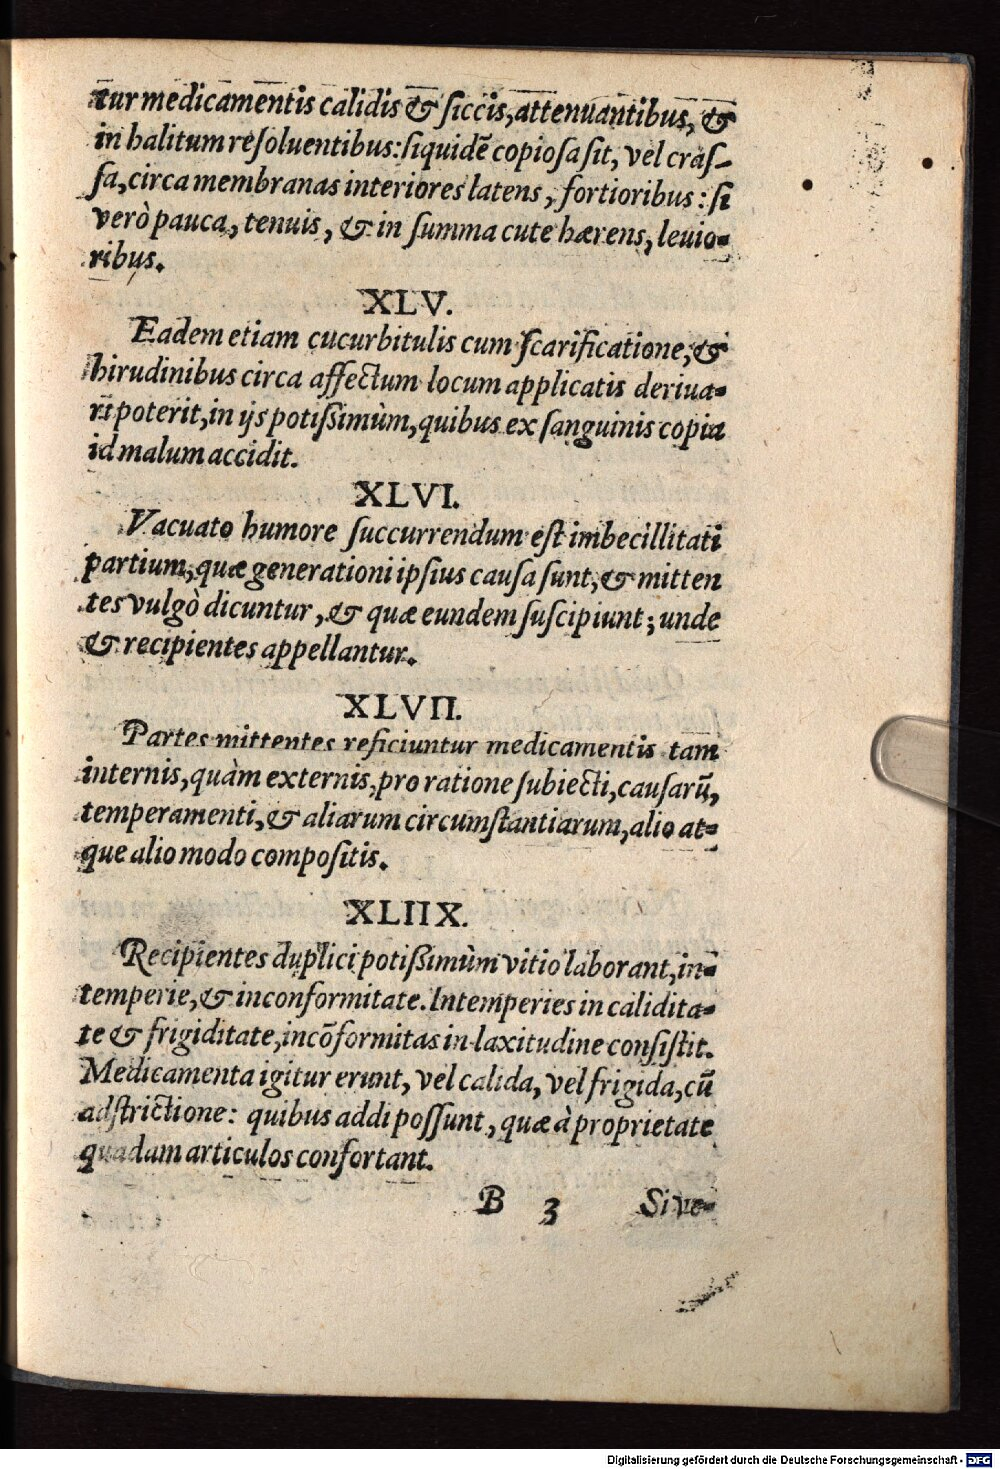 tur medicamentis calidis & ſiccis, attenuantibus, &
in halitum reſoluentibus: ſiquidē copioſa ſit, vel craſ-
ſa, circa membranas interiores latens, fortioribus: ſi
verò pauca, tenuis, & in ſumma cute hærens, leuio-
ribus.
XLV.
Eadem etiam cucurbitulis cum ſcarificatione, &
hirudinibus circa affectum locum applicatis deriua-
ri poterit, in ijs potiſſimùm, quibus ex ſanguinis copia
id malum accidit.
XLVI.
Vacuato humore ſuccurrendum eſt imbecillitati
partium, quæ generationi ipſius cauſa ſunt, & mitten
tes vulgò dicuntur, & quæ eundem ſuſcipiunt; unde
& recipientes appellantur.
XLVII.
Partes mittentes reficiuntur medicamentis tam
internis, quàm externis, pro ratione ſubiecti, cauſarū,
temperamenti, & aliarum circumſtantiarum, alio at-
que alio modo compoſitis.
XLIIX.
Recipientes duplici potiſſimùm vitio laborant, in-
temperie, & inconformitate. Intemperies in calidita-
te & frigiditate, incōformitas in laxitudine conſiſtit.
Medicamenta igitur erunt, vel calida, vel frigida, cū
adſtrictione: quibus addi poſſunt, quæ à proprietate
quadam articulos confortant.
B 3 Si ve-
Digitalisierung gefördert durch die Deutsche Forschungsgemeinschaft - DFG